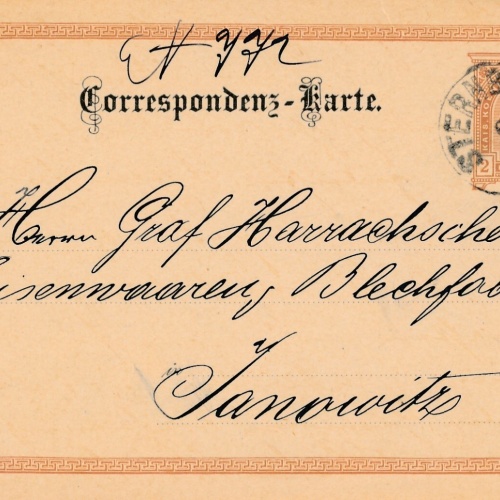 N 772
Correspondenz-Karte.
STERNB
KAIS. KÖ
2
Herrn Graf Harrachsche
isenwaaren, Blechfab
in
Janowitz